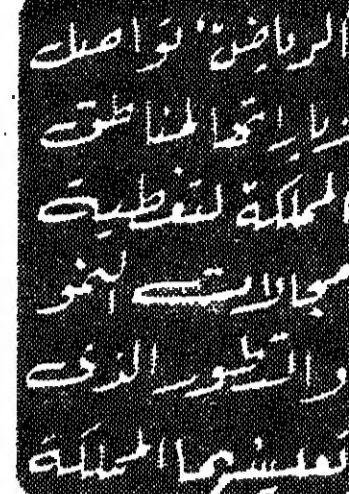 الرياض" تواصل
زياراتها لمناطق
المملكة لتغطية
مجالات النمو
والتطور الذي
تعيشها المملكة